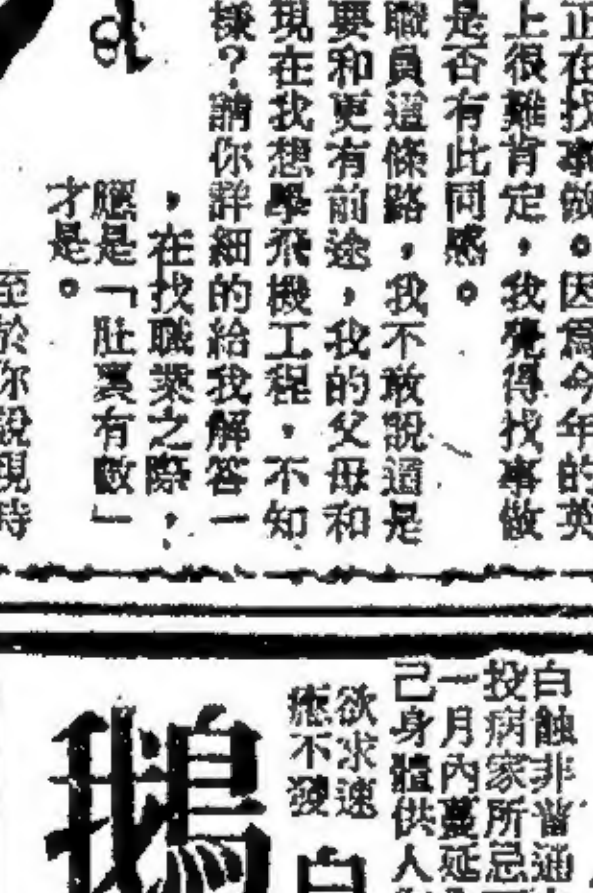 正在找事做。因爲今年的英
上很難肯定，我覺得找事做
是否有此同感。
職員這條路，我不敢說這是
要和更有前途，我的父母和
現在我想學飛機工程，不知
樣？請你詳細的給我解答一
，在找職業之際，
應是「肚裏有數」
才是。
至於你說現時
白蝕非普通
投病家所忌
一月內蔓延
己身體供人
欲求速
癒不發
白
鵝